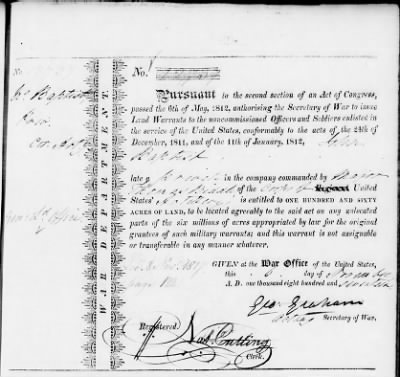 No.
Pursuant to the second section of an Act of Congress,
passed the 6th of May, 1812, authorising the Secretary of War to issue
Land Warrants to the noncommissioned Officers and Soldiers enlisted in
the service of the United States, conformably to the acts of the 24th of
December, 1811, and of the 11th of January, 1812, John
Baptist
late a in the company commanded by Major
of the Corps of Regiment United
States' Artillery is entitled to ONE HUNDRED AND SIXTY
ACRES OF LAND, to be located agreeably to the said act on any unlocated
parts of the six millions of acres appropriated by law for the original
grantees of such military warrants; and this warrant is not assignable
or transferable in any manner whatever.
GIVEN at the War Office of the United States,
this 6 day of November
A. D. one thousand eight hundred and seventeen
Geo: Graham
Secretary of War.
Registered.
Nat Cutting
Clerk.
WAR DEPARTMENT.
Baptist